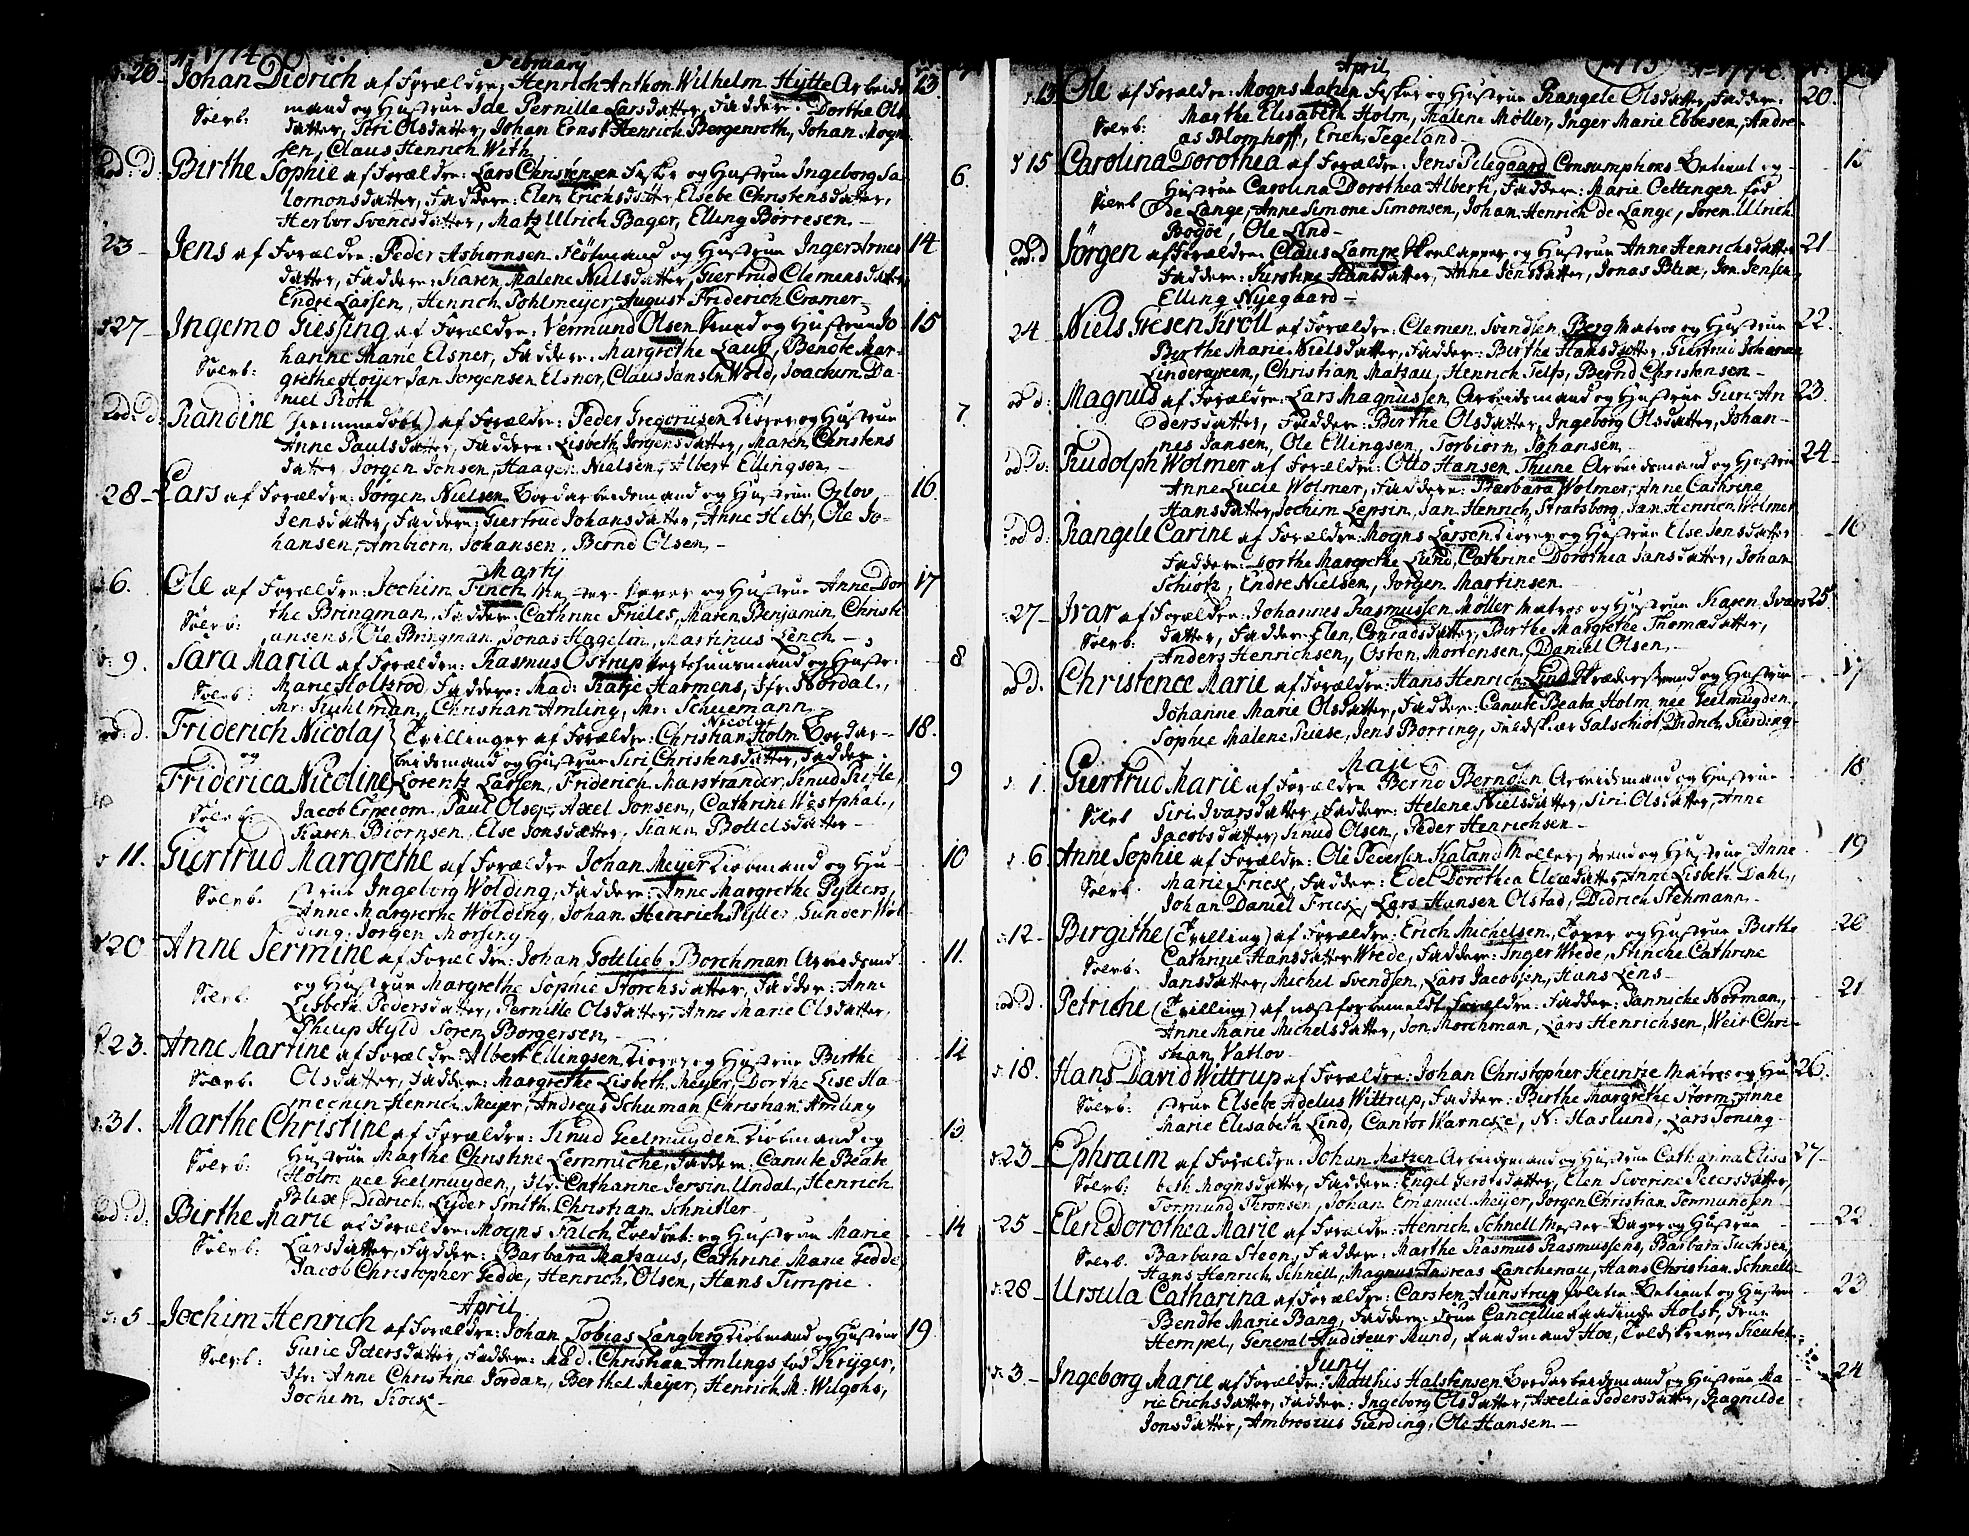 Ao 1774. February
d: 20 Johan Didrich af Forældre, Henrich Anthon Wilhelm Hytte Arbeids 13
Sverb: mand og Hustrue Ide Pernille Larsdatter, Faddere: Dorthe Ols
datter, Siri Olsdatter, Johan Ernst Henrich Bergenroth, Johan Mogn
sen, Claus Henrich With
eod: d: Birthe Sophie af Forældre: Lars Christensen Fisker og Hustrue Ingeborg Sa- 6.
lomonsdatter, Faddere: Elen Erichsdatter, Elsebe Christensdatter,
Herbor Svensdatter, Matz Ulrich Bager, Elling Børresen.
23 Jens af Forældre: Peder Asbiørnsen Fløtmand og Hustrue Inger Arnes 14
datter, Faddere: Karen Malene Nielsdatter, Giertrud Clemensdatter
Endre Larsen, Henrich Pohlmeyer, August Friderich Cramer
27 Ingemo Giessing af Forældre: Vermund Olsen Svend og Hustrue Jo 15
hanne Marie Elsner, Faddere: Margrethe Laub, Bendte Mar-
Sverb: grethe Høyer Jan Jørgensen Elsner, Claus Jansen Wold, Joachim Da-
niel Roth
eod: d: Randine (hiemmedøbt) af Forældre: Peder Gregoriisen Kiører og Hustrue 7
Anne Paulsdatter, Faddere: Lisbeth Jørgensdatter, Maren Christens
datter, Jørgen Jensen, Haagen Nielsen, Albert Ellingsen
28 Lars af Forældre: Jørgen Nielsen Bordarbeidsmand og Hustrue Ozlov 16.
Jensdatter, Faddere: Giertrud Johansdatter, Anne Helt, Ole Jo-
hansen, Ambiørn Johansen, Bernd Olsen,
Martij
6. Ole af Forældre: Jochim Finch Mester og Hustrue Anne Dor 17
Sverb: the Bringman, Faddere: Cathrine Frieles, Maren Benjamin Christi
ansens, Ole Bringman, Jonas Hagelin, Martinus Lench
9. Sara Maria af Forældre: Rasmus Ostrup og Hustr: 8
Sverb: Marie Holtzrod, Faddere: Mad: Katje Harmens, Jfr: Nordal,
Mr: Kuhlman, Christian Amling, Mr: Schuemann
eod: d. Friderich Nicolaj Tvillinger af Forældre: Christian Nicolai Holm Bordar- 18.
og beidsmand og Hustrue Siri Christensdatter, Faddere:
Friderica Nicoline Lorentz Larsen, Friderich Marstrander, Knud Rifle, 9
Sverb. Jacob Especom, Paul Olsen, Axel Jonsen, Cathrine Westphal,
Karen Biørnsen, Else Jonsdatter, Karen Bottelsdatter
11. Giertrud Margrethe af Forældre Johan Meyer Kiøbmand og Hu- 10
Sverb. strue Ingeborg Wolding, Faddere: Anne Margrethe Pytters,
Anne Margrethe Wolding, Johan Henrich Pytter, Gunder Wol
ding, Jørgen Morsing
20 Anne Jermine af Forældre: Johan Gottlieb Borchman Arbeidsmd: 11.
Sverb: og Hustrue Margrethe Sophie Storchsdatter, Faddere: Anne
Lisbeth Pedersdatter, Pernille Olsdatter, Anne Marie Olsdatter,
Philip Hyld Søren Borgersen
23. Anne Martine af Forældre: Albert Ellingsen Kiører og Hustrue Birthe 12
Sverb. Olsdatter, Faddere: Margrethe Lisbeth Meyer, Dorthe Lise Ha-
mechen Henrich Meyer, Andreas Schuman, Christian Amling
31. Marthe Christine af Forældre: Knud Geelmuyden Kiøbmand og 13.
Sverb: Hustrue Marthe Christine Lemmiche, Faddere: Canute Beate
Holm nee Geelmuyden, Jfr. Catharine Jersin Undal, Henrich
Blix, Didrich Lyder Smith, Christian Schnitler
eod: d: Birthe Marie af Forældre: Mogns Falch Toldbet: og Hustrue Marie 14
Sverb: Larsdatter, Faddere: Barbara Matsaus, Cathrine Marie Gedde,
Jacob Christopher Gedde, Henrich Olsen, Hans Timpie.
April
5 Jochim Henrich af Forældre: Johan Tobias Langberg Kiøbmand og Hustrue 19.
Sverb: Gurie Petersdatter, Faddere: Mad: Christian Amlings fød Kryger,
Jfr: Anne Christine Jordan, Berthel Meyer, Henrich M: Wilgohs,
Jochem Kock
April 1773 Ao 1774
13 Ole af Forældre: Mogns Matzen Fisker og Hustrue Rangele Olsdatter, Faddere: 20.
Sverb: Marthe Elisabeth Holm, Malene Møller, Inger Marie Ebbesen, Andre-
as Blomhoff, Erich Tegeland
15 Carolina Dorothea af Forældre: Jens Pilegaard Consumptions Betient og 15
Sverb Hustrue Carolina Dorothea Alberti, Faddere: Marie Oettingen fød
de Lange, Anne Simone Simonsen, Johan Henrich de Lange, Søren Ulrich
Bogøe, Ole Lind
eod: d Jørgen af Forældre: Claus Lampe Skoelapper og Hustrue Anne Henrichsdatter 21
Faddere: Kirstine Hansdatter, Anne Jensdatter, Jonas Blixe, Jon Jensen,
Elling Nyegaard
24 Niels Giesen Krøll af Forældre: Clemen Svendsen Berg Matros og Hustrue 22.
Birthe Marie Nielsdatter, Faddere: Birthe Hansdatter, Giertrud Johanne
Linderaßen, Christian Matsau, Henrich Telfs, Bernd Christensen
eod d: Magnus af Forældre: Lars Magnussen, Arbeidsmand og Hustrue Guri An 23.
dersdatter, Faddere: Birthe Olsdatter, Ingeborg Olsdatter, Johan-
nes Jansen, Ole Ellingsen, Torbiørn Johansen
eod d: Rudolph Wolmer af Forældre: Otto Hansen Thune Arbeidsmand og Hustrue 24
Anne Lucie Wolmer, Faddere: Barbara Wolmer, Anne Cathrine
Hansdatter, Jochim Lepsin, Jan Henrich Stratsborg, Jan Henrich Wolmer
eod d: Rangele Carine af Forældre: Mogns Larsen Kiører og Hustrue Else Jensdatter 16
Faddere: Dorthe Margrethe Lund, Cathrine Dorothea Jansdatter, Johan
Schiøtz, Endre Nielsen, Jørgen Martinsen
27 Ivar af Forældre: Johannes Rasmussen Møller Matros og Hustrue Karen Ivars 25
Sverb: datter, Faddere: Elen Conradsdatter, Birthe Margrethe Thomædatter,
Anders Henrichsen, Osten Mortensen, Daniel Olsen,
eod d. Christence Marie af Forældre: Hans Henrich Lind Skrædersvend og Hustrue 17
Johanne Marie Olsdatter, Faddere: Canute Beata Holm nee Geelmuyden,
Sophie Malene Riese, Jens Borring, Galschiøt, Didrich Gierding
Maji
1. Giertrud Marie af Forældre Bernd Berndsen Arbeidsmand og Hustrue 18
Sverb Siri Ivarsdatter, Faddere: Helene Nielsdatter, Siri Olsdatter, Anne
Jacobsdatter, Knud Olsen, Peder Henrichsen
6 Anne Sophie af Forældre: Ole Pedersen Kaland Møllersvend og Hustrue Anne 19
Sverb. Marie Frick, Faddere: Edel Dorothea Eliædatter, Anne Lisbeth Dahl,
Johan Daniel Frick, Lars Hansen Olstad, Didrich Stehmann
12 Birgithe (Tvilling) af Forældre: Erich Michelsen, Tover og Hustrue Birthe 20
Sverb. Cathrine Hansdatter Wrede, Faddere: Inger Wrede, Stinche Cathrine
Jansdatter, Michel Svendsen, Lars Jacobsen, Hans Lens
eod: D. Petriche (Tvilling) af næstforbemeldte Forældre: Faddere: Jannicke Norman, 21
Anne Marie Michelsdatter, Jon Morchman, Lars Henrichsen, Weit Chri-
stian Vatlov
18. Hans David Wittrup af Forældre: Johan Christopher Heinrie Matros og Hu 26.
Sverb: strue Elsebe Adelus Wittrup, Faddere: Birthe Margrethe Storm, Anne
Marie Elisabeth Lind, Cantor Warneke, N: Haslund, Lars Toning
23 Ephraim af Forældre: Johan Matzen Arbeidsmand og Hustrue Catharina Elisa 27
Sverb: beth Mognsdatter, Faddere: Engel Gerdtsdatter, Elen Siverine Petersdatter,
Tormund Thronsen, Johan Emanuel Meyer, Jørgen Christian Tormundsen
25 Elen Dorothea Marie af Forældre: Henrich Schnell Mester Bager og Hustrue 22
Sverb. Barbara Steen, Faddere: Marthe Rasmus Rasmussens, Barbara Fuchsen,
Hans Henrich Schnell, Magnus Andreas Lanchenau, Hans Christian Schnell
28 Ursula Catharina af Forældre: Carsten Aunstrup Politie Betient og Hustrue 23
Bendte Marie Bang, Faddere: Frue Cancellieraadinde Holst, Frue
Hempel, General Auditeur Mund, Raadmand Hoe, Toldskriver Kientel
Junij
3 Ingeborg Marie af Forældre: Matthis Halstensen Bordarbeidsmand og Hustrue Ma- 24
rie Erichsdatter, Faddere: Ingeborg Olsdatter, Axelia Pedersdatter, Ragnilde
Jonsdatter, Ambrosius Gierding, Ole Hansen